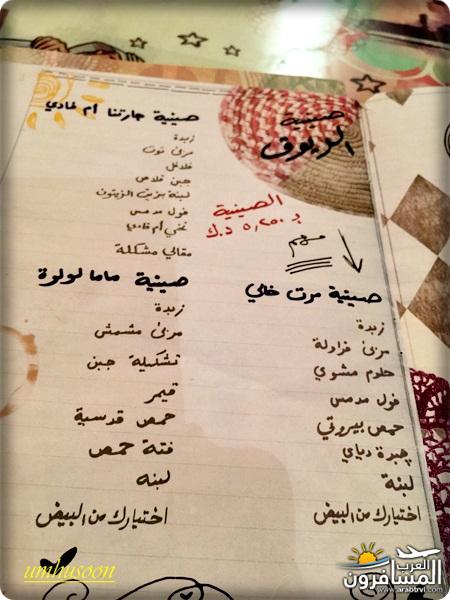 صينية
الريوق
الصينية
بـ ٥,٢٠٠ د.ك
مهم
صينية مرت خالي
زبدة
مربى فراولة
حلوم مشوي
فول مدمس
حمص بيروتي
جبرة دباي
لبنة
اختيارك من البيض
صينية جارتنا أم غادي
زبدة
مربى توت
فلافل
جبن فلاحي
لبنة بزيت الزيتون
فول مدمس
نخي أم غادي
مقالي مشكلة
صينية ماما لولوة
زبدة
مربى مشمش
تشكيلة جبن
قيمر
حمص قدسية
فتة حمص
لبنه
اختيارك من البيض
umhusoon
العرب
المسافرون
www.arabtrvl.com